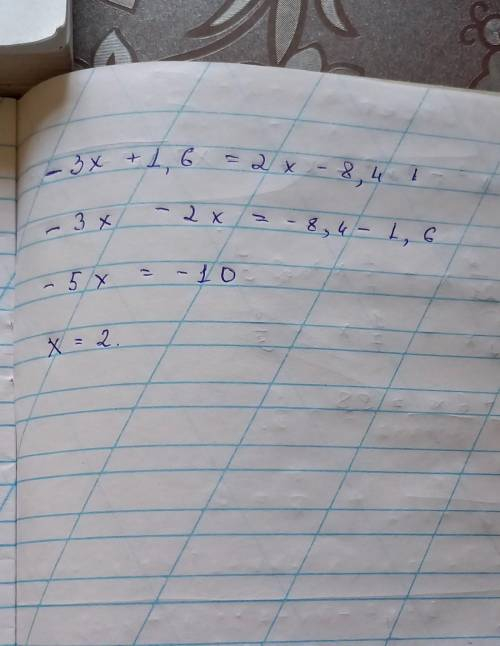 - 3x + 1,6 = 2x - 8,4
- 3x - 2x = -8,4 - 1,6
- 5x = -10
x = 2.